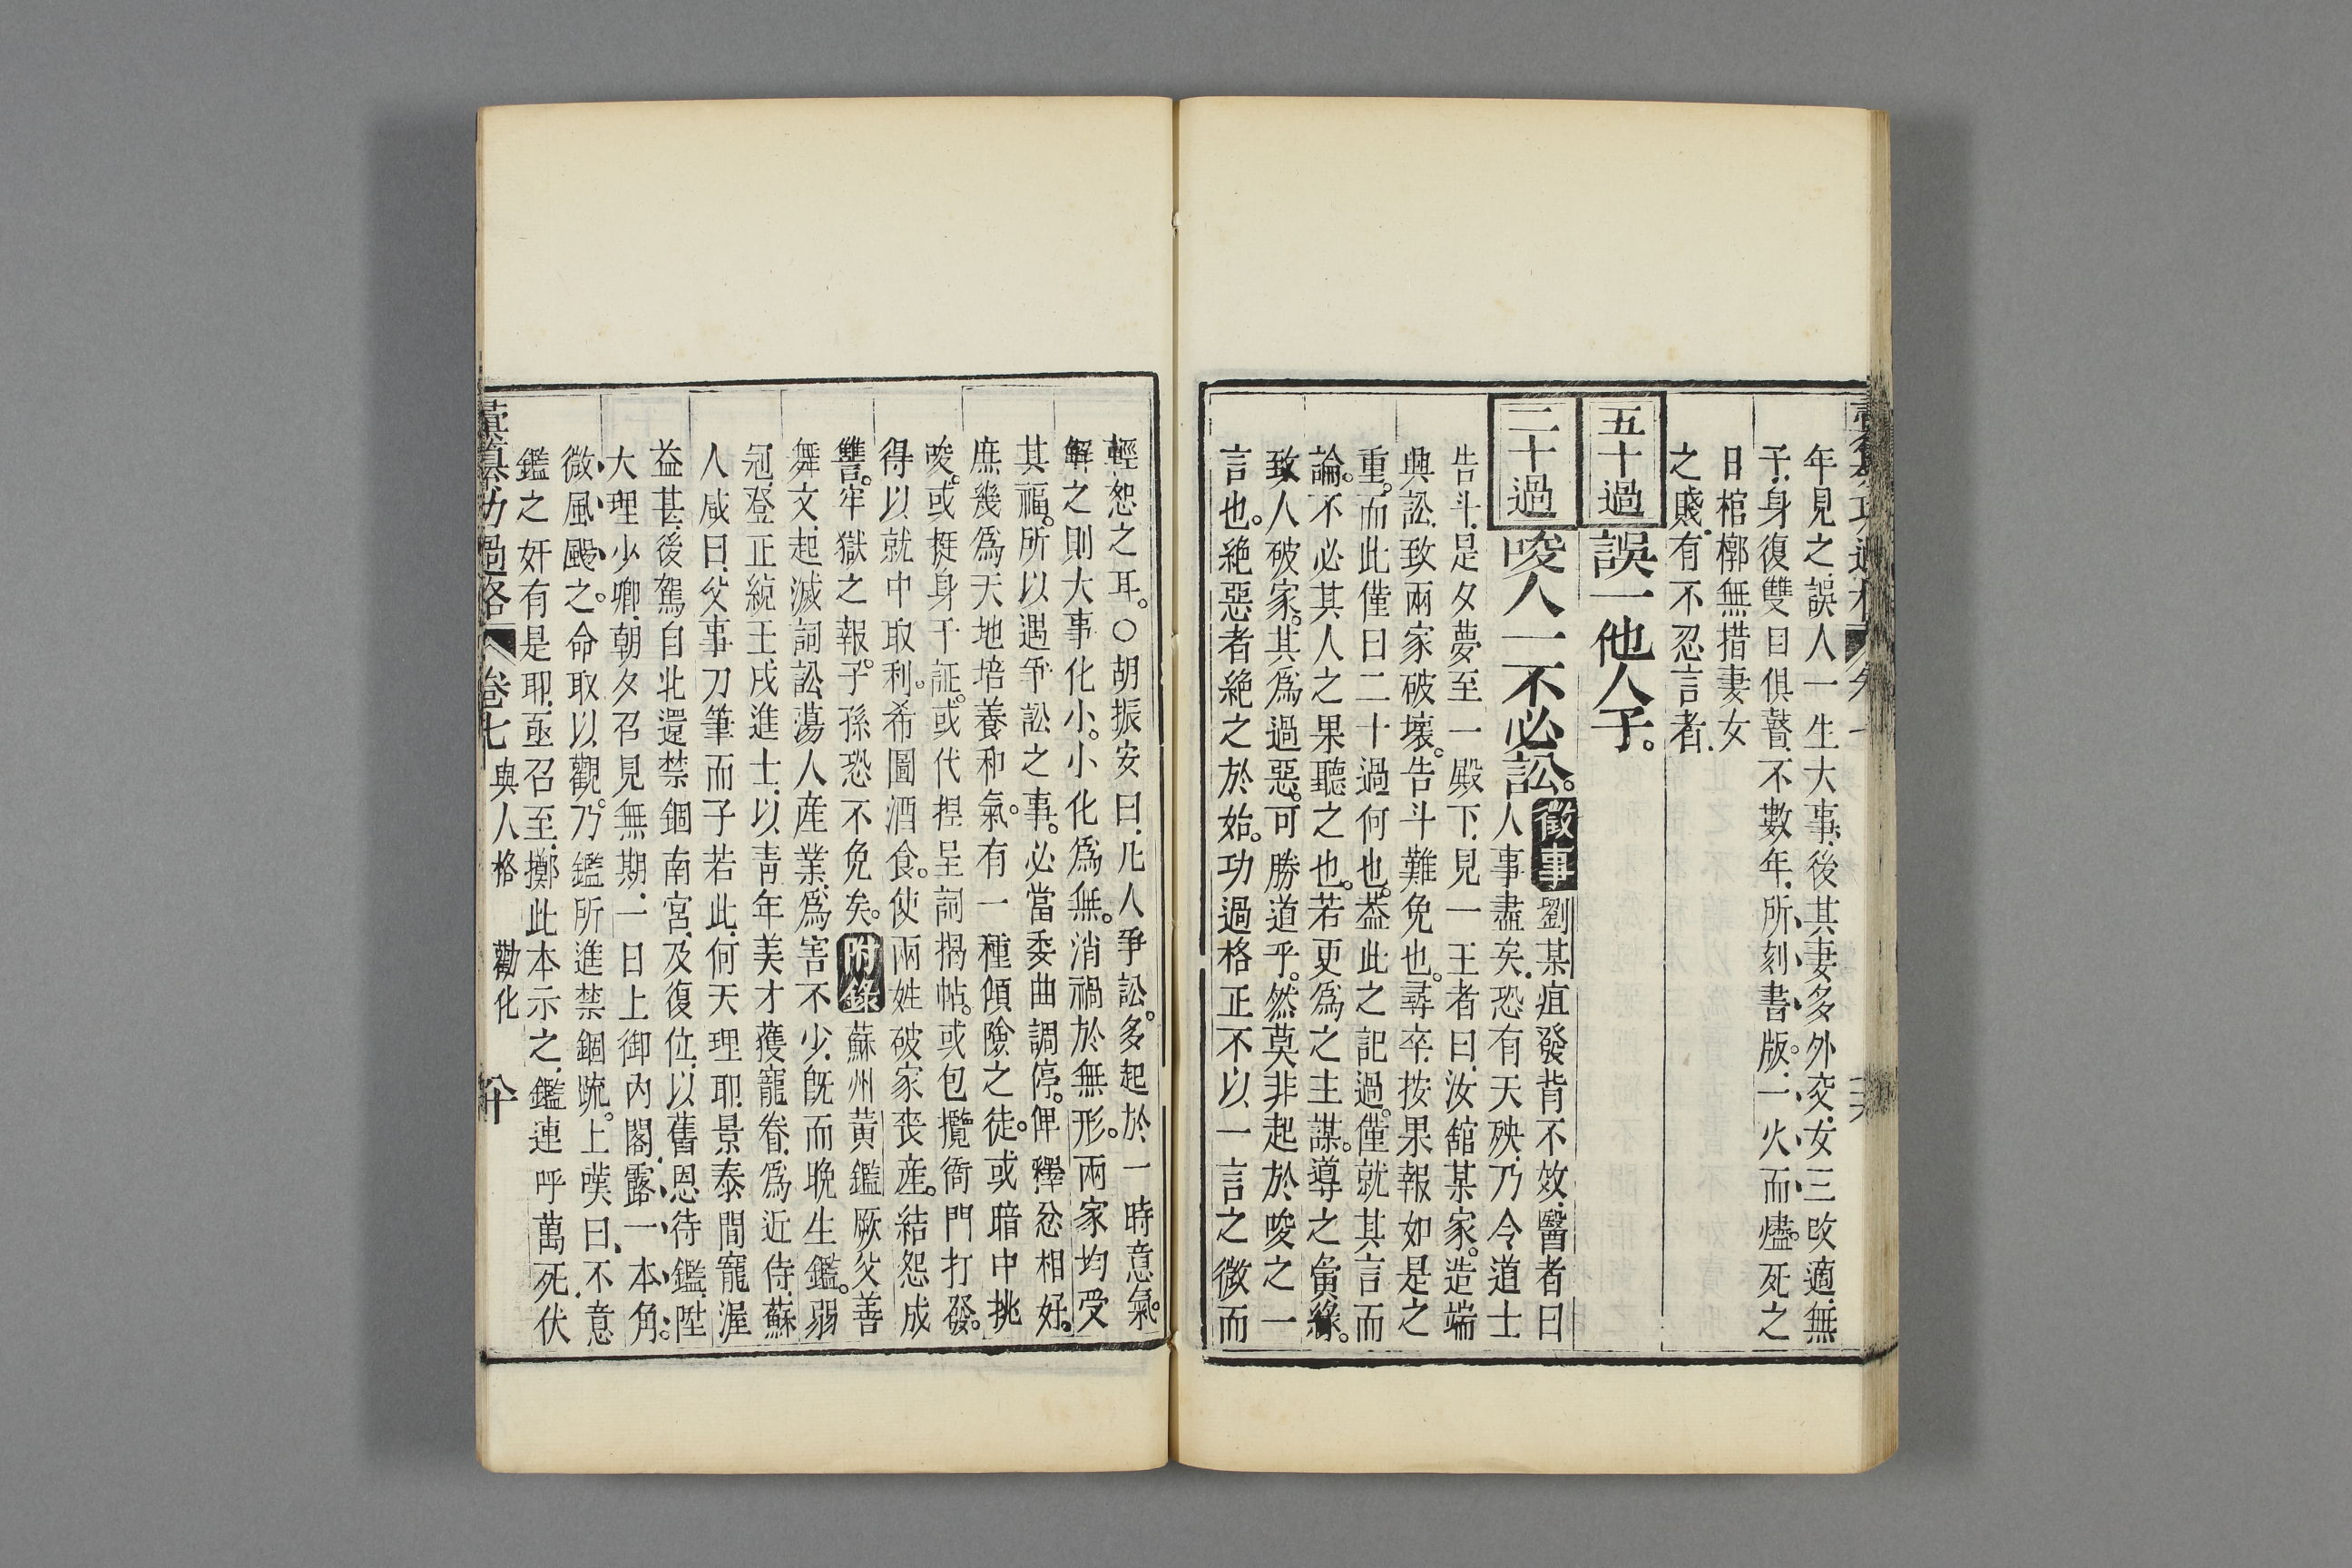 年見之誤人一生大事後其妻多外交女三改適無
子身復雙目俱瞽不數年所刻書版一火而燼死之
日棺槨無措妻女
之賤有不忍言者
五十過 誤一他人子。
二十過 唆人一不必訟。徵事 劉某疽發背不效醫者曰
人事盡矣恐有天殃乃令道士
告斗是夕夢至一殿下見一王者曰汝舘某家。造端
興訟致兩家破壞。告斗難免也。尋卒按果報如是之
重。而此僅曰二十過何也。葢此之記過。僅就其言而
論。不必其人之果聽之也。若更爲之主謀。導之夤緣。
致人破家。其爲過惡。可勝道乎。然莫非起於唆之一
言也。絶惡者絶之於始。功過格正不以一言之微而
輕恕之耳。〇胡振安曰凡人爭訟。多起於一時意氣。
解之則大事化小。小化爲無。消禍於無形。兩家均受
其福。所以遇爭訟之事。必當委曲調停。俾釋忿相好。
庶幾爲天地培養和氣。有一種傾險之徒。或暗中挑
唆。或挺身干証。或代捏呈詞揭帖。或包攬衙門打發。
得以就中取利。希圖酒食。使兩姓破家喪産。結怨成
讐。牢獄之報。子孫恐不免矣。附錄 蘇州黃鑑厥父善
舞文起滅詞訟蕩人産業爲害不少旣而晩生鑑。弱
冠登正統壬戌進士以靑年美才蒦寵眷爲近侍蘇
人咸曰父事刀筆而子若此何天理耶景泰間寵渥
益甚後駕自北還禁錮南宮及復位以舊恩待鑑陞
大理少卿朝夕召見無期一日上御內閣露一本角。
微風颺之。命取以觀。乃鑑所進禁錮疏。上嘆曰不意
鑑之奸有是耶亟召至擲此本示之鑑連呼萬死伏
彙纂功過格 卷七 與人格 勸化 八十